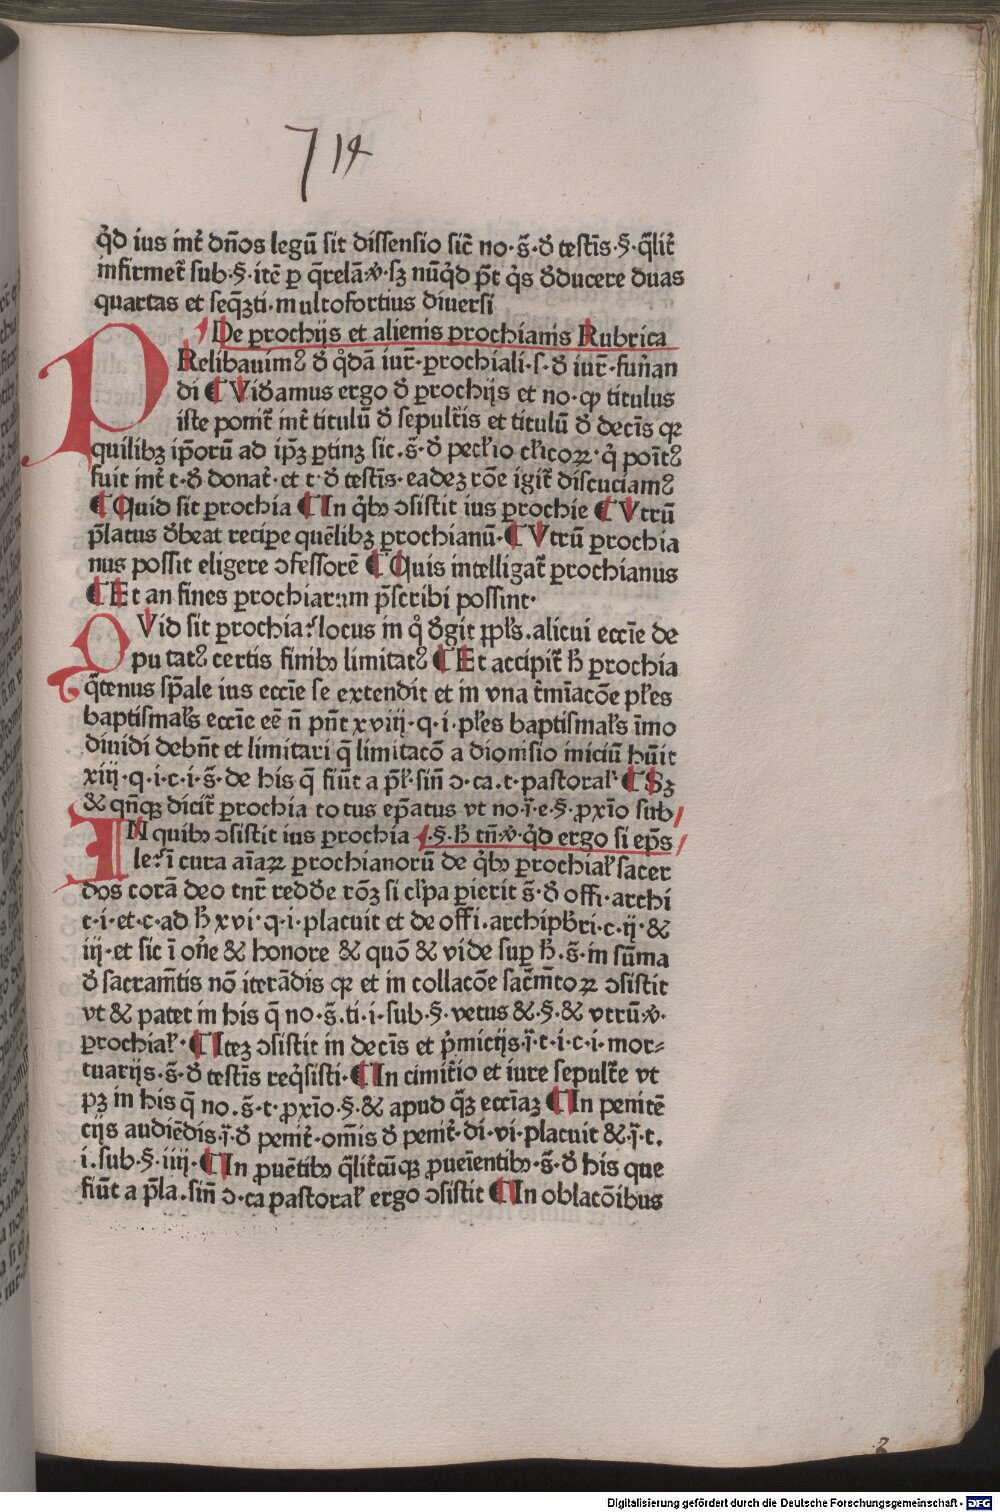 714
qd̕ ius int̕ dn̄os legū sit dissensio sic̄ no·s̄·đ testīs·§·q̄lit̕
infirmet̄ sub·§·itē p q̄relā·v̕·sz nūqd̕ p̄t qͥs đducere duas
quartas et seqz̄ti·multofortius diversi
De prochijs et alienis prochianis Rubrica
PRelibavimꝰ đ qͥdā iur̄·prochiali·s·đ iur̄·fun̕an
di ¶ Viđamus ergo đ prochijs et no·ꝙ titulus
iste ponit̄ int̕ titulū đ sepult̕is et titulū đ decīs qꝛ
quilibꝫ ip̄orū ad ip̄ꝫ ptinꝫ sic·s̄·đ pecl̕io cl̕icoꝝ·qͥ poīt̕ꝰ
fuit int̕ t·đ donat̕·et t·đ testīs·eadeꝫ rōe igit̄ discuciamꝰ
¶ Quid sit prochia ¶ In qͥbꝰ ↄsistit ius prochie ¶ Vtrū
p̄latus đbeat recipe quēlibꝫ prochianū·¶ Vtrū prochia
nus possit eligere ↄfessorē ¶ Quis intelligat̄ prochianus
¶ Et an fines prochiarum p̄scribi possint·
QVid sit prochia? locus in qͦ đgit ppl̕s·alicui eccīe de
putatꝰ certis finibꝰ limitatꝰ ¶ Et accipit̄ ħ prochia
qͣtenus sp̄ale ius eccīe se extendit et in vna t̕mīacōe pl̕es
baptismal̕s eccīe eē n̄ pn̄t xviij·q·i·pl̕es baptismal̕s īmo
dividi debn̄t et limitari q̄ limitacō a dionisio iniciū hūit
xiij·q·i·c·i·s̄·de his q̄ fiūt a p̄l̕·sin̄ ↄ·ca·t·pastoral̕ ¶ Sꝫ
& qn̄qꝫ dicit̄ prochia totus ep̄atus vt no·ī·e·§·pxīo sub
IN quibꝰ ↄsistit ius prochia ·§·ħ tn̄·v̕·qd̕ ergo si ep̄s
le? ī cura aīaꝝ prochianorū de qͥbꝰ prochial̕ sacer
dos corā deo tnr̄ redđe rōꝫ si cl̕pa pierit s̄·đ offi·archi
t·i·et·c·ad ħ xvi·q·i·placuit et de offi·archipb̄ri·c·ij·&
iij·et sic ī on̄e & honore & quō & vide sup ħ·s̄·in sūma
đ sacram̄tis nō iterādis qꝛ et in collacōe sac̄m̄toꝝ ↄsistit
vt & patet in his q̄ no·s̄·ti·i·sub·§·vetus &·§·& vtrū·v̕·
prochial̕·¶ Iteꝫ ↄsistit in decīs et pͥmicijs·ī·t·i·c·i·mor-
tuarijs·s̄·đ testīs reqͥsisti·¶ In cimit̕io et iure sepult̕e vt
pꝫ in his q̄ no·s̄·t·pxīo·§·& apud q̄ꝫ eccīaꝫ ¶ In penitē
cijs audiēdis·ī·đ penit̕·om̄is đ penit̕·di·vi·placuit &·ī·t·
i·sub·§·iiij·¶ In puētibꝰ q̄lit̕cūqꝫ pueīentibꝰ·s̄·đ his que
fiūt a p̄la·sin̄ ↄ·ca pastoral̕ ergo ↄsistit ¶ In oblacōibus
Digitalisierung gefördert durch die Deutsche Forschungsgemeinschaft - DFG